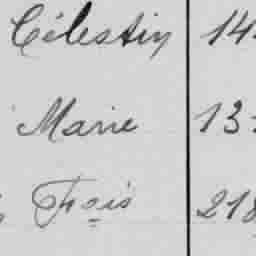 Célestin 14
Marie 13
Fr̲o̲i̲s 218